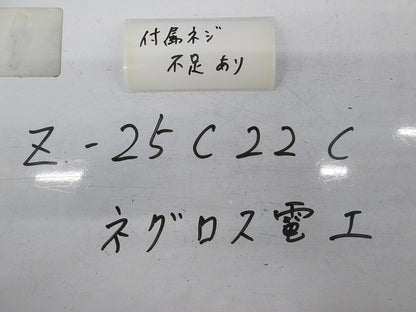 付属ネジ
不足あり
Z-25C22C
ネグロス電工